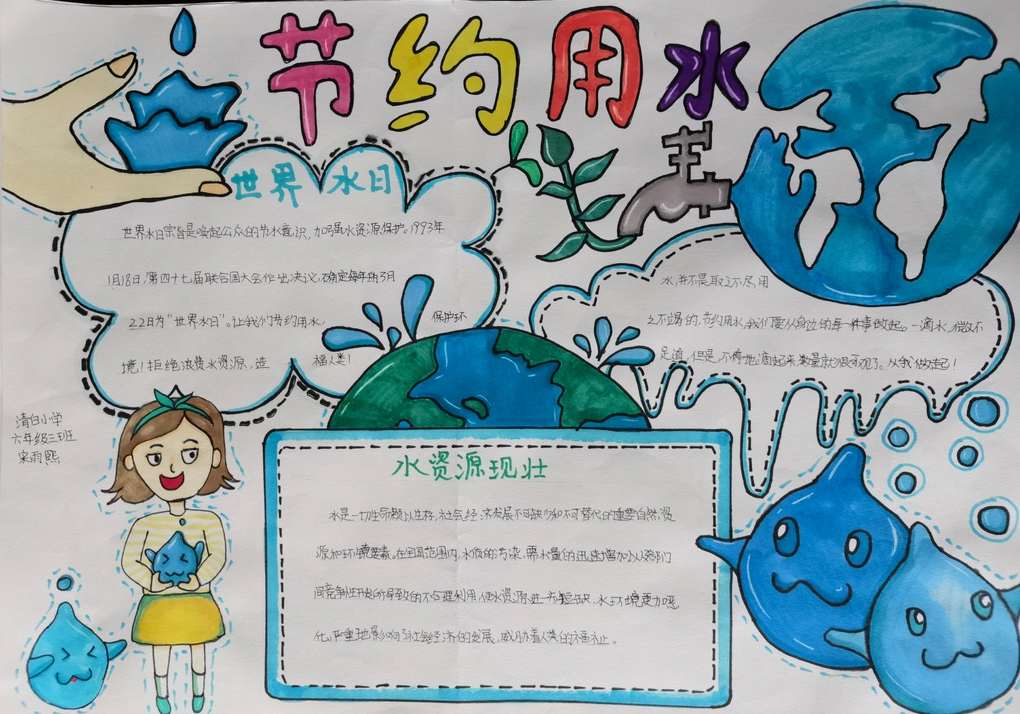 节约用水
世界水日
世界水日宗旨是唤起公众的节水意识,加强水资源保护。1993年
1月18日,第四十七届联合国大会作出决议,确定每年的3月
22日为“世界水日”。让我们节约用水,保护环
境!拒绝浪费水资源,造福人类!
水,并不是取之不尽,用
之不竭的,节约用水,我们要从身边的每一件事做起。一滴水,微不
足道,但是,不停地滴起来,数量就很可观了。从我做起!
清白小学
六年级三班
宋雨熙
水资源现壮
水是一切生命赖以生存,社会经济发展不可缺少和不可替代的重要自然资
源和环境要素。在全国范围内,水质的污染、需水量的迅速增加以及部门
间竞争性开发所导致的不合理利用,使水资源进一步短缺,水环境更加恶
化,严重地影响了社会经济的发展,威胁着人类的福祉。